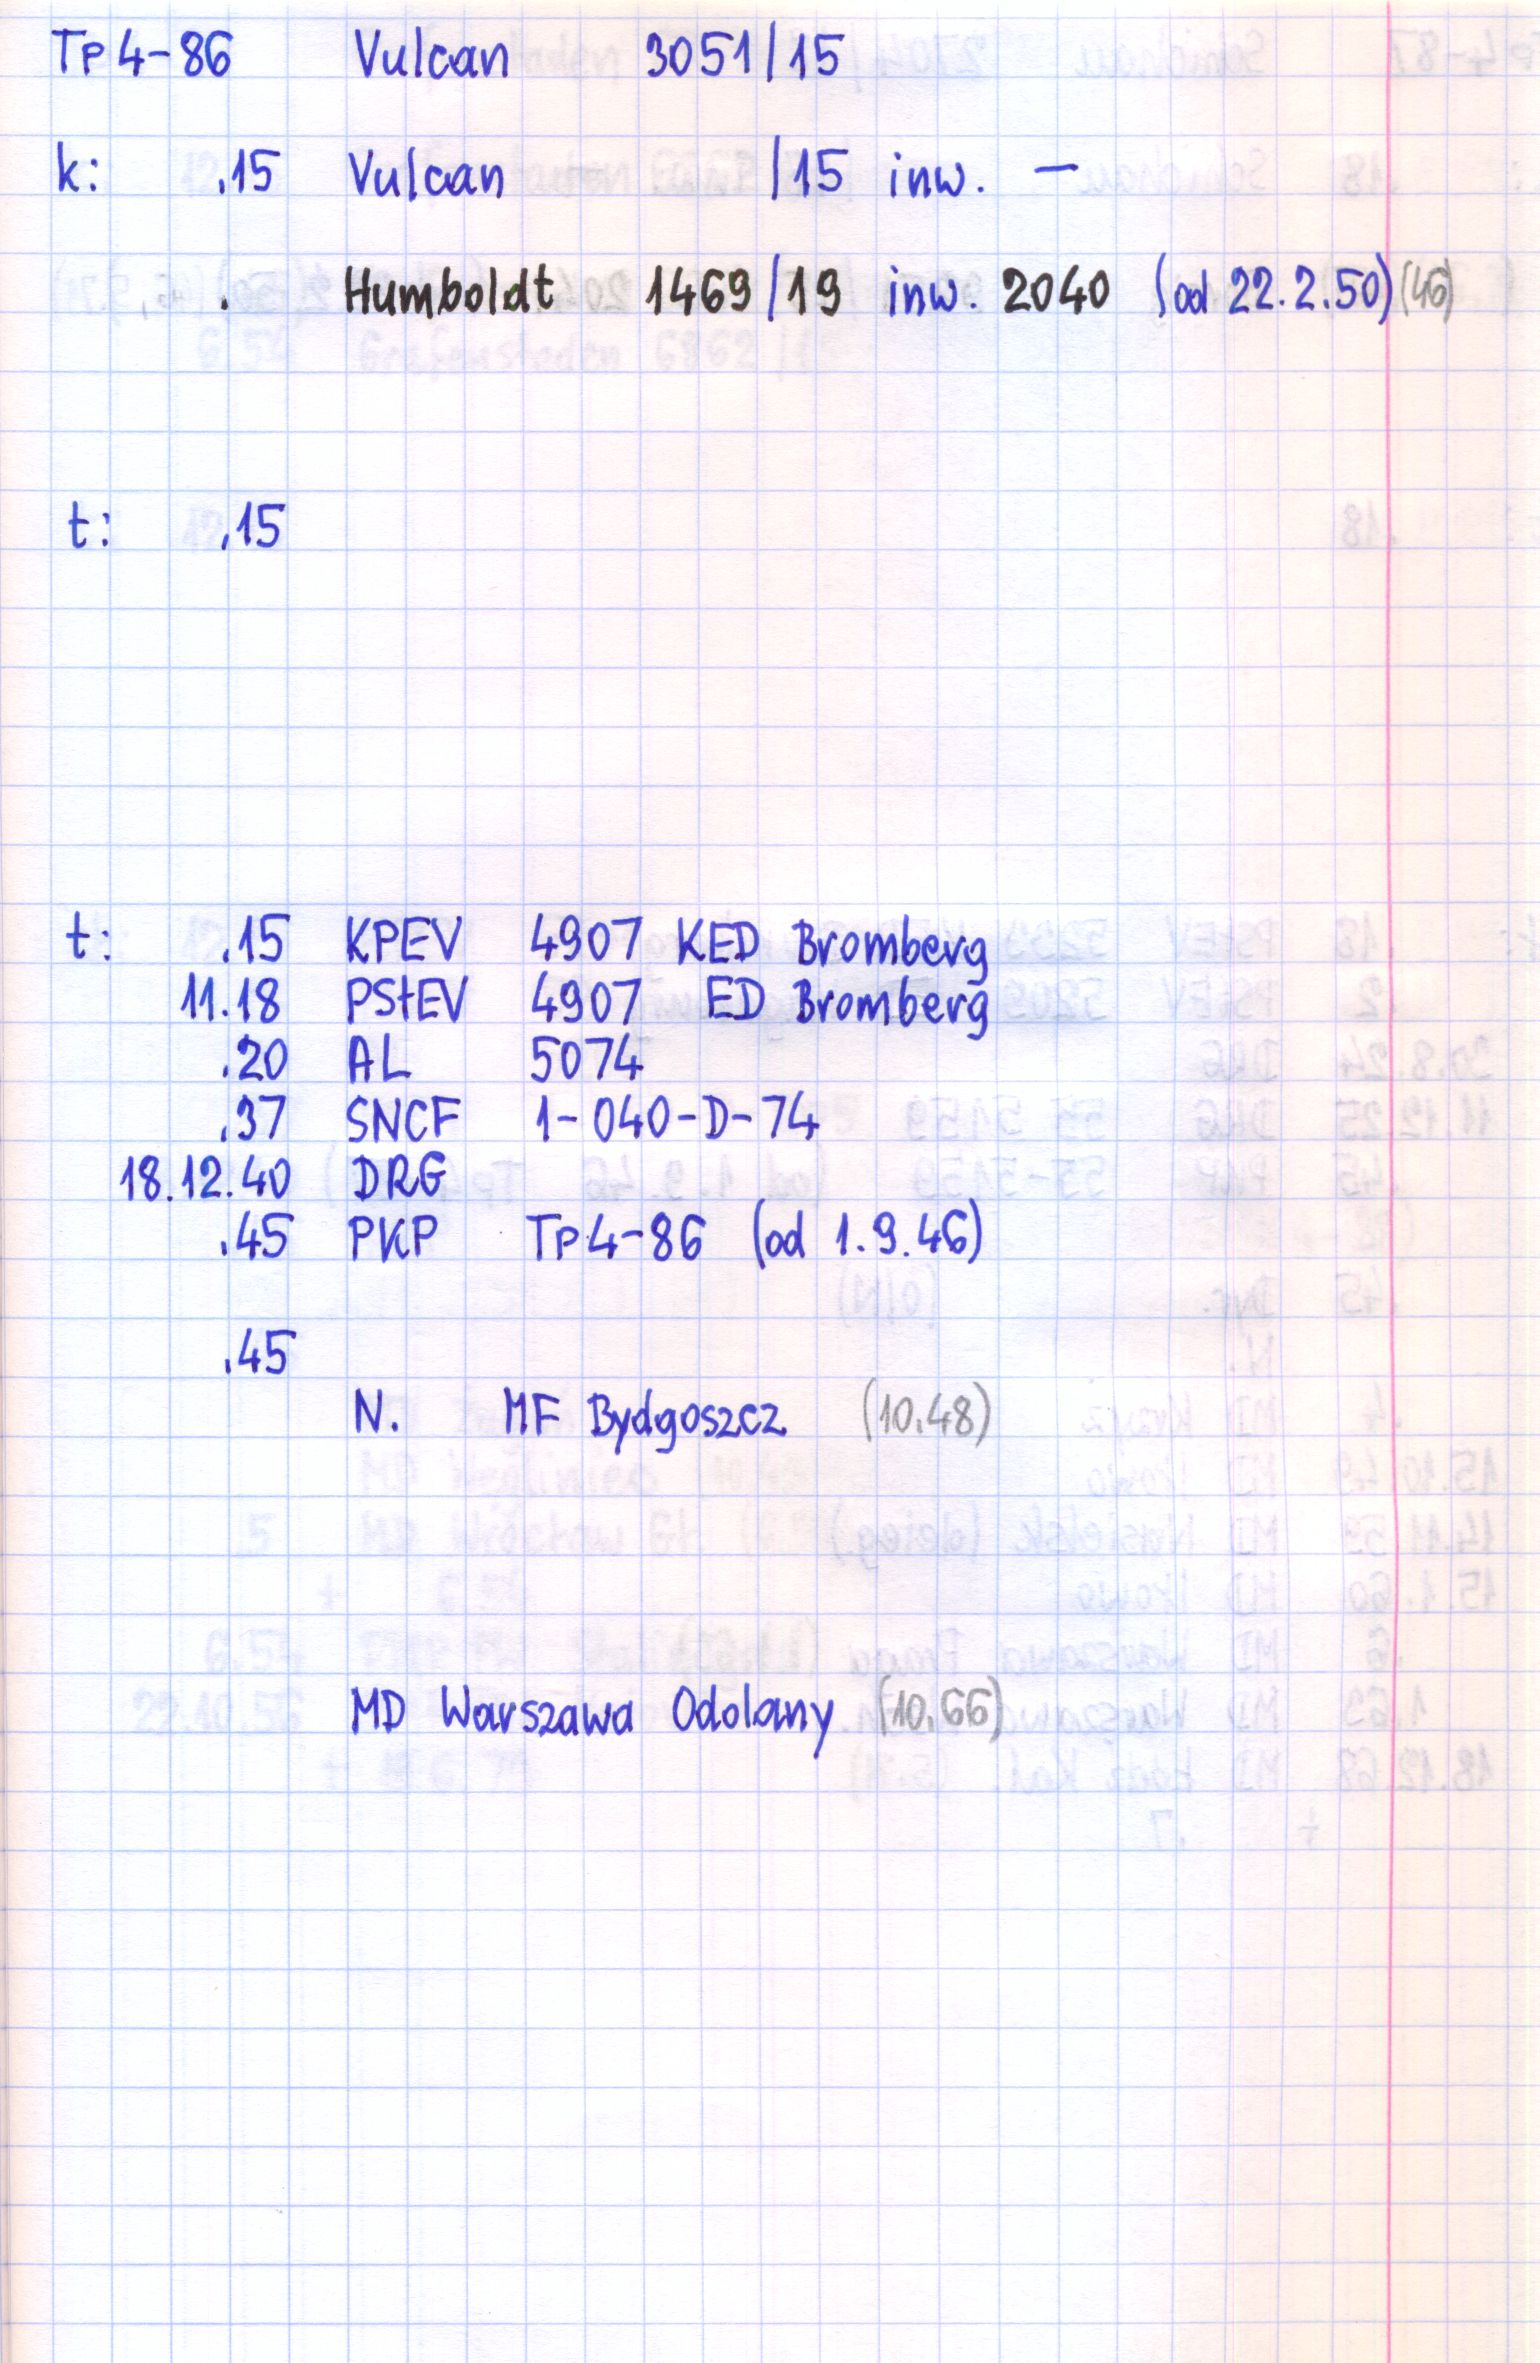 Tp4-86 Vulcan 3051/15
k: .15 Vulcan /15 inw. —
. Humboldt 1469/19 inw. 2040 (od 22.2.50) (46)
t: .15
t: .15 KPEV 4907 KED Bromberg
11.18 PStEV 4907 ED Bromberg
.20 AL 5074
.37 SNCF 1-040-D-74
18.12.40 DRG
.45 PKP Tp4-86 (od 1.9.46)
.45
N. MF Bydgoszcz (10.48)
MD Warszawa Odolany (10.66)